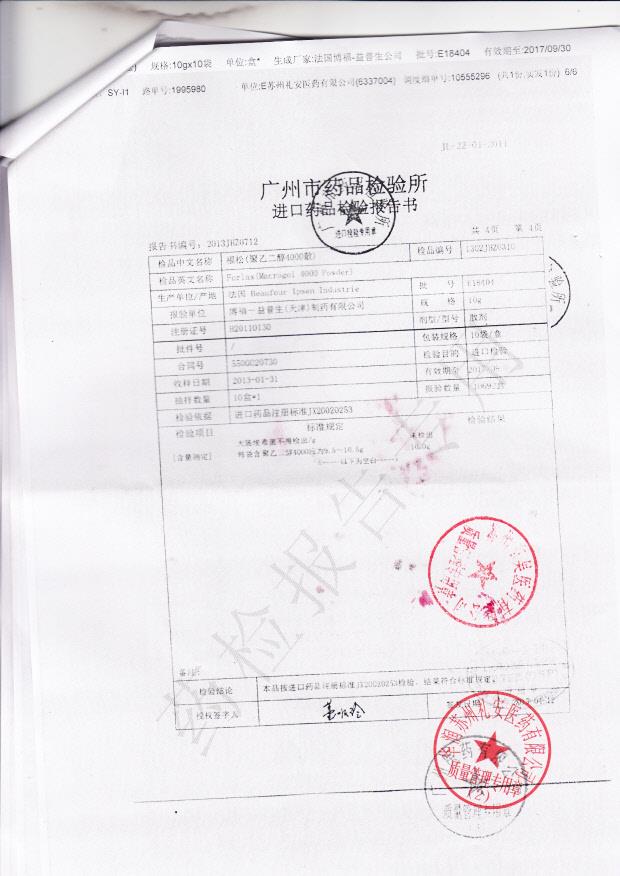 规格:10gx10袋 单位:盒* 生成厂家:法国博福-益普生公司 批号:E18404 有效期至:2017/09/30
SY-I1 路单号:1995980 单位:E苏州礼安医药有限公司(6337004) 调度细单号:10555296 (共1份,实发1份) 6/6
JL-22-01-2011
广州市药品检验所
进口药品检验报告书
进口检验专用章
报告书编号: 2013JHZ0712 共 4页 第 4页
检品中文名称 福松(聚乙二醇4000散) 检品编号 1302JHZ0310
检品英文名称 Forlax(Macrogol 4000 Powder)
生产单位/产地 法国 Beaufour Ipsen Industrie 批 号 E18404
报验单位 博福-益普生(天津)制药有限公司 规 格 10g
注册证号 H20110130 剂型/型号 散剂
批件号 / 包装规格 10袋/盒
合同号 5500020730 检验目的 进口检验
收样日期 2013-01-31 有效期至
抽样数量 10盒*1 报验数量
检验依据 进口药品注册标准JX20020253
检验项目 标准规定 检验结果
大肠埃希菌不得检出/g 未检出
[含量测定] 每袋含聚乙二醇4000应为9.5~10.5g 10.0g
<----以下为空白---->
药检报告专用
备注:
检验结论 本品按进口药品注册标准JX20020253检验，结果符合标准规定。
授权签字人
华润苏州礼安医药有限公司
质量管理专用章
(2)